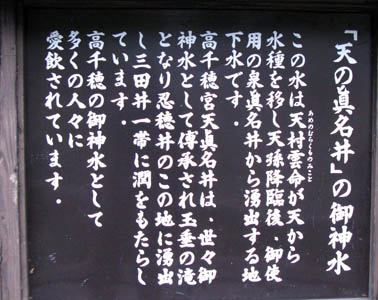 「天の眞名井」の御神水
あめのむらくものみこと
この水は天村雲命が天から
水種を移し天孫降臨後、御使
用の泉眞名井から湧出する地
下水です。
高千穂宮天眞名井は、世々御
神水として傳承され玉垂の滝
となり忍穂井のこの地に湧出
し三田井一帯に潤をもたらし
ています。
高千穂の御神水として
多くの人々に
愛飲されています。